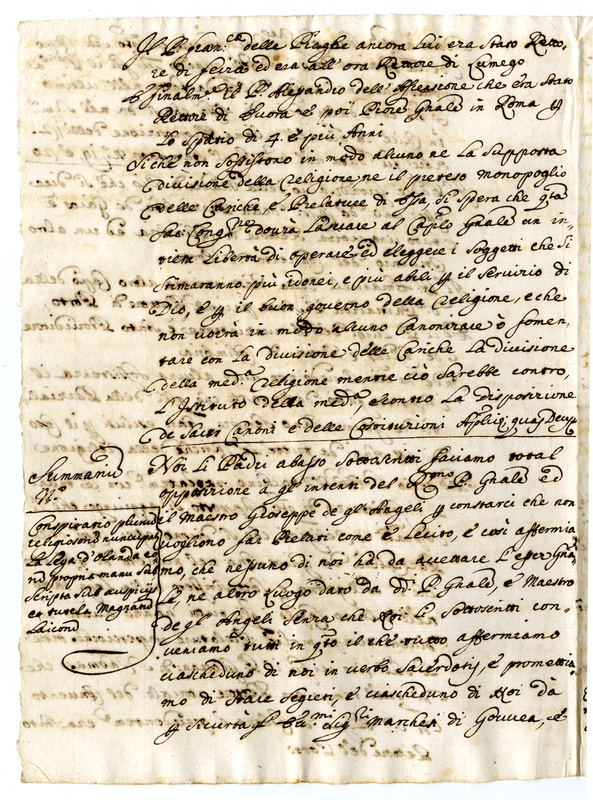 Il P. Fran.co delle Piaghe ancora lui era stato Retto-
re di Feira ed era all'ora Rettore di Lamego
E finalm.e il P. Alesandro dell'Ascensione che era stato
Rettore di Evora e poi Proc.re Gnale in Roma p
Lo spatio di 4. e più Anni
Siche non sossistono in modo alcuno ne La supposta
divisione della Religione, ne il preteso monopoglio
delle Cariche, e Prelature di Essa, Si spera che q.ta
Sac. Cong.ne dovrà Lasciare al Cap.lo Gnale un in-
tiera Libertà di operare, ed eleggere i Soggetti che Si
Stimaranno più idonei, e più abili p il servizio di
Dio, e p il buon governo della Religione, e che
non vorrà in modo alcuno Canonizare ò fomen-
tare con La divisione delle Cariche La divisione
della med.a Religione mentre ciò Sarebbe contro,
L'Istituto della med.a, e contro La disposizione
de Sacri Canoni e delle Costituzioni Aplice, quas Deus
Summario
N.o
Conspiratio plurium
religiosorum nuncupat
La Lega d'Olanda eo
propria manu Sub
scripta Sub auspicijs
et tutela
Laicorum
Noi Li Padri abasso Sottoscritti facciamo total
opposizione à gl'intenti del R.mo P. Gnale ed
il Maestro Gioseppe de gl'Angeli p constarci che non
vogliono far Prelati come è Lecito, e così affermia-
mo, che nessuno di noi ha da accettare L'esser Gna-
Le, ne altro Luogo dato da dd. P. Gnale, e Maestro
degl'Angeli Senza che Noi Li Sottoscritti con-
veniamo tutti in q.to il che tutto affermiamo
ciascheduno di noi in verbo Sacerdotis, e promettia-
mo di Stare Segreti, e ciascheduno di Noi dà
p sicurtà Marchesi di Gouvea, e